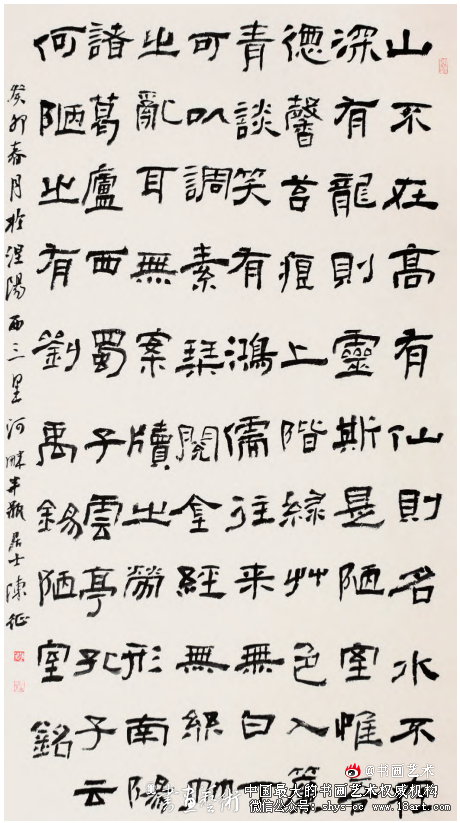 山不在高有仙則名水不在
深有龍則靈斯是陋室惟吾
德馨苔痕上階緑艸色入簾
青談笑有鴻儒往来無白丁
可以調素琹閱金經無絲竹
之亂耳無案牘之勞形南陽
諸葛廬西蜀子雲亭孔子云
何陋之有劉禹錫陋室銘
癸卯春月於涅陽西三里河畔半瓶居士陳征
@书画艺术
書畫藝術
中国最大的书画艺术权威机构
微信公众号: shys-ccv 官网: www.18art.com